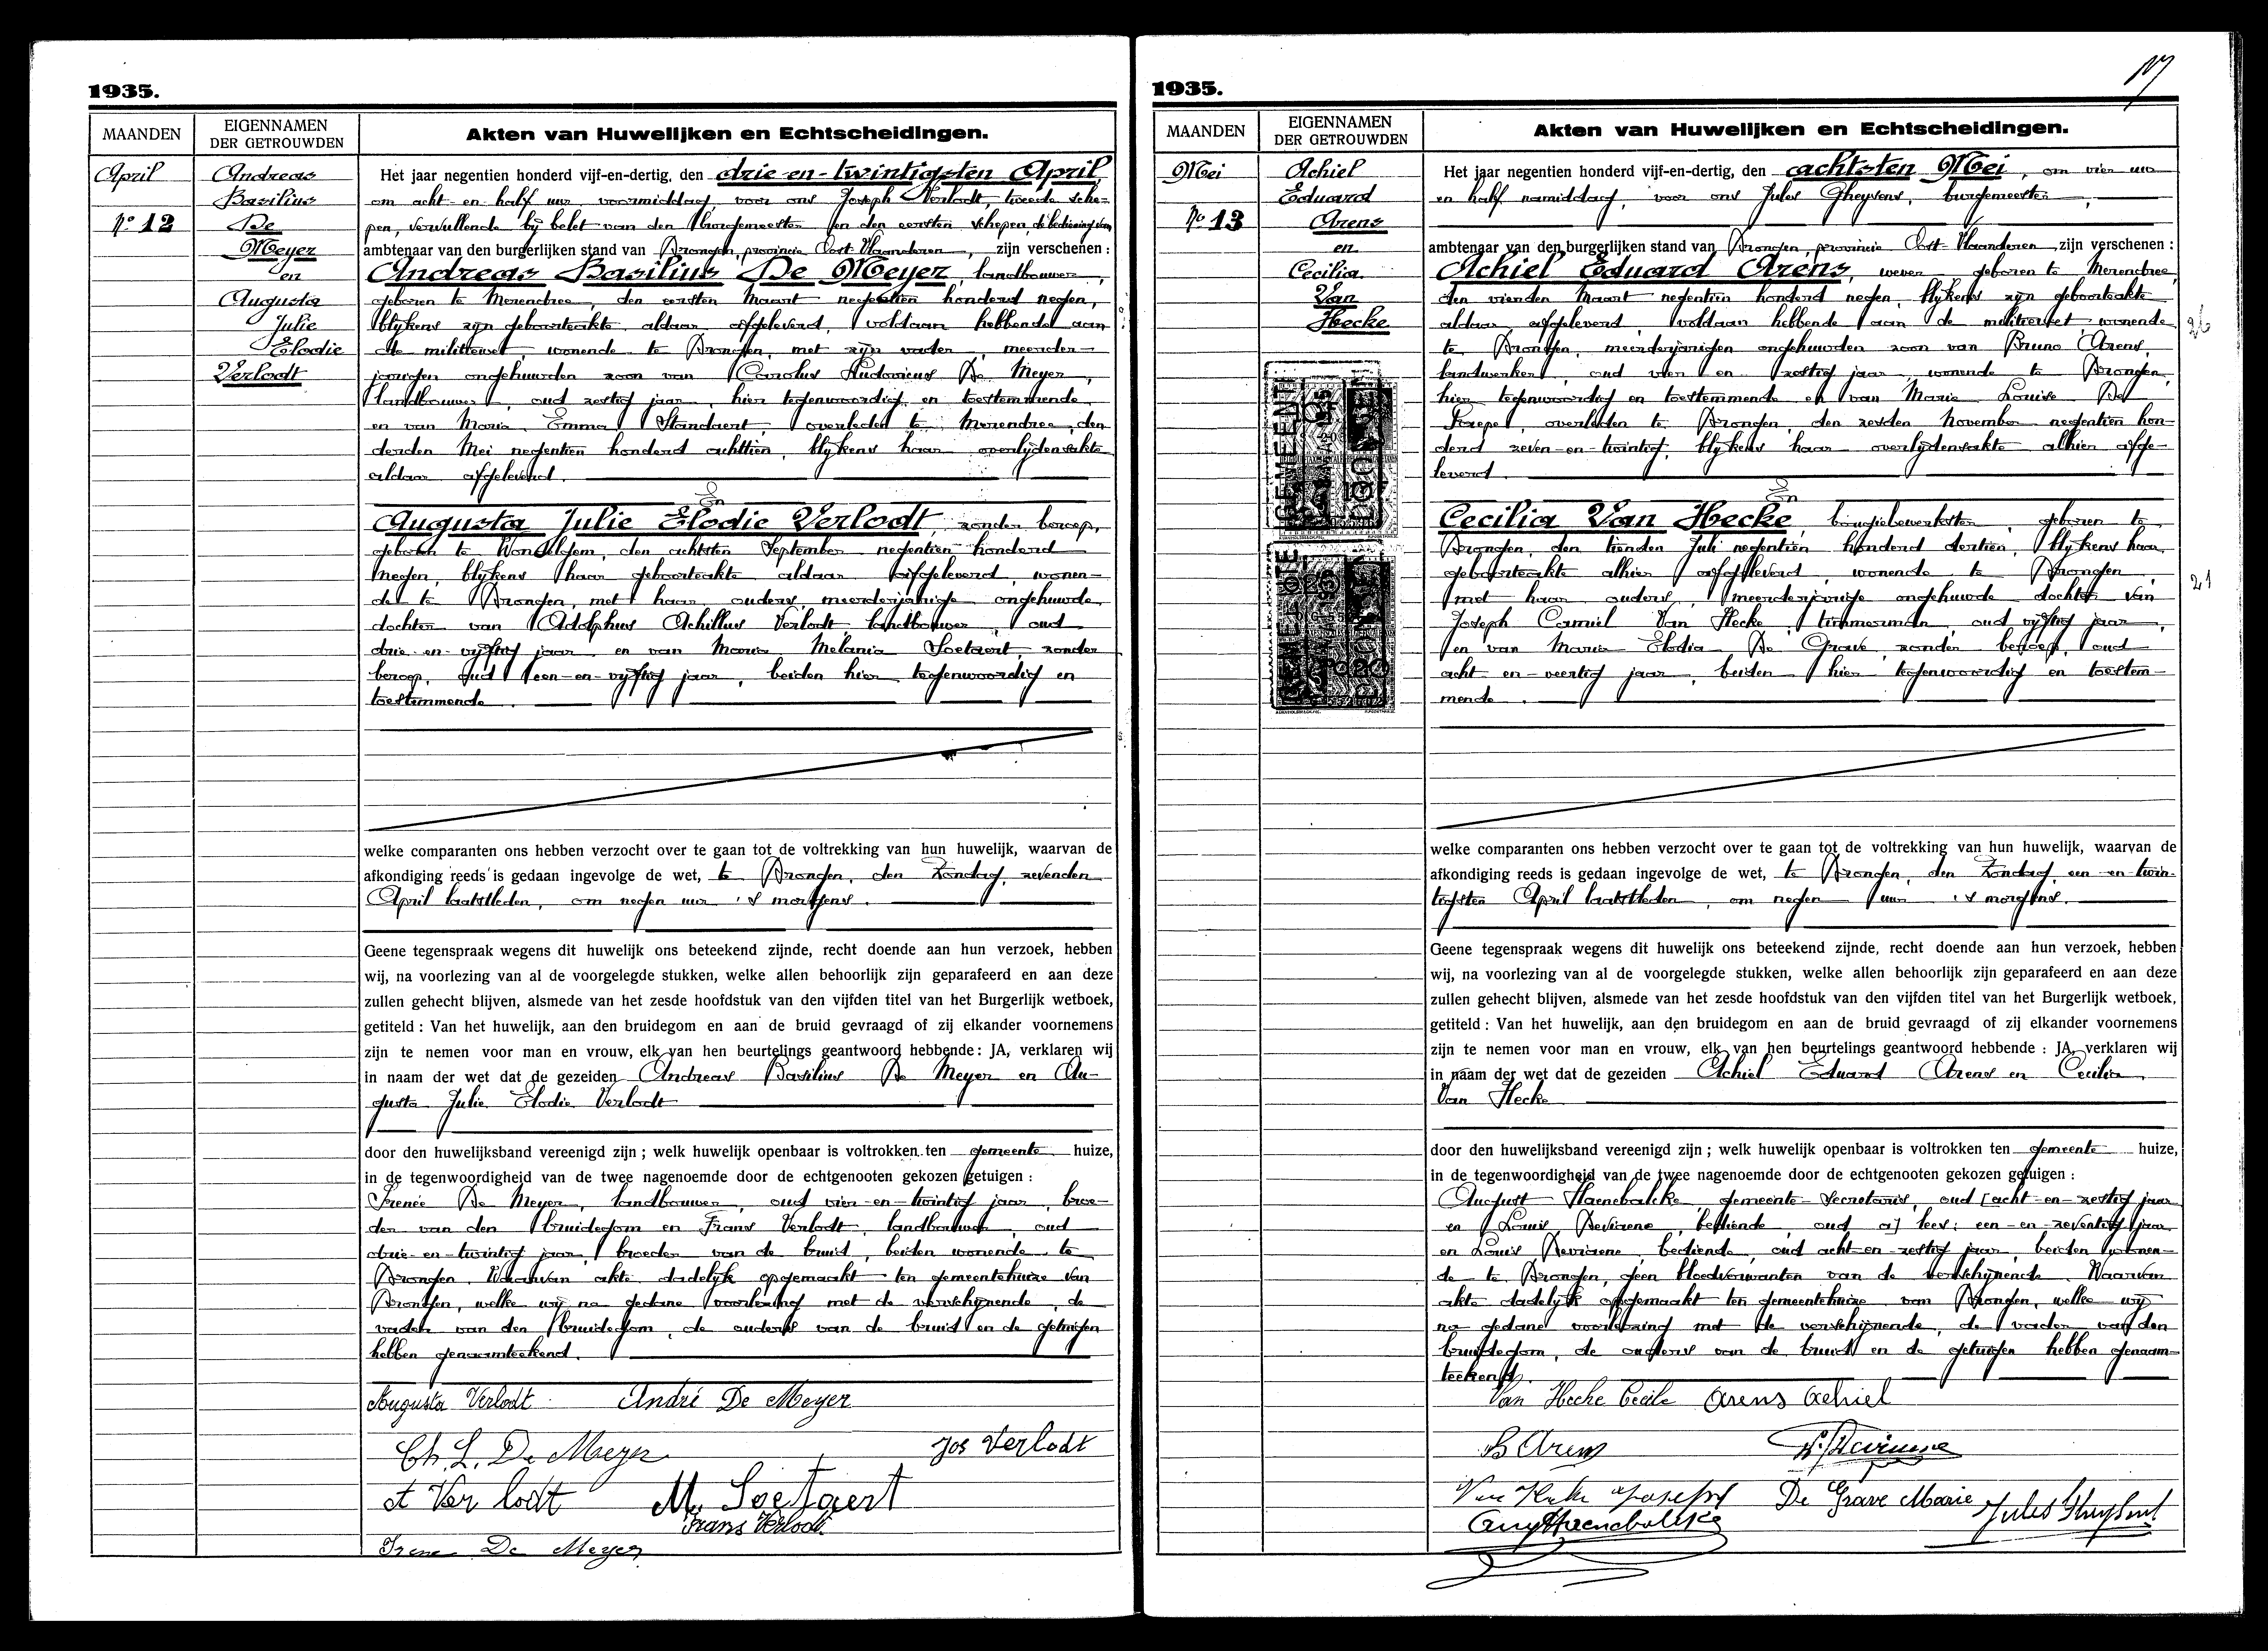 1935.
MAANDEN
EIGENNAMEN
DER GETROUWDEN
Akten van Huwelijken en Echtscheidingen.
April
Nº 12
Andreas
Basilius
De
Meyer
en
Augusta
Julie
Elodie
Verlodt
Het jaar negentien honderd vijf-en-dertig, den drie-en-twintigsten April,
om acht en half uur voormiddag, voor ons Joseph Verlodt, tweede sche-
pen, vervullende bij belet van den burgemeester en den eersten schepen, de bediening van
ambtenaar van den burgerlijken stand van Drongen, provincie Oost-Vlaanderen, zijn verschenen :
Andreas Basilius De Meyer, landbouwer,
geboren te Merendree, den eersten Maart negentien honderd negen,
blijkens zijn geboorteakte aldaar afgeleverd, voldaan hebbende aan
de militiewet, wonende te Drongen, met zijn vader, meerder-
jarigen ongehuwden zoon van Carolus Ludovicus De Meyer,
landbouwer, oud zestig jaar, hier tegenwoordig en toestemmende,
en van Maria Emma Standaert, overleden te Merendree, den
derden Mei negentien honderd achttien, blijkens haar overlijdensakte
aldaar afgeleverd.
En
Augusta Julie Elodie Verlodt, zonder beroep,
geboren te Wondelgem, den achtsten September negentien honderd
negen, blijkens haar geboorteakte aldaar afgeleverd, wonen-
de te Drongen, met haar ouders, meerderjarige ongehuwde
dochter van Adolphus Achillus Verlodt, landbouwer, oud
drie-en-vijftig jaar en van Maria Melania Soetaert, zonder
beroep, oud een-en-vijftig jaar, beiden hier tegenwoordig en
toestemmende.
welke comparanten ons hebben verzocht over te gaan tot de voltrekking van hun huwelijk, waarvan de
afkondiging reeds is gedaan ingevolge de wet, te Drongen, den Zondag, zevenden
April laatstleden, om negen uur 's morgens.
Geene tegenspraak wegens dit huwelijk ons beteekend zijnde, recht doende aan hun verzoek, hebben
wij, na voorlezing van al de voorgelegde stukken, welke allen behoorlijk zijn geparafeerd en aan deze
zullen gehecht blijven, alsmede van het zesde hoofdstuk van den vijfden titel van het Burgerlijk wetboek,
getiteld : Van het huwelijk, aan den bruidegom en aan de bruid gevraagd of zij elkander voornemens
zijn te nemen voor man en vrouw, elk van hen beurtelings geantwoord hebbende : JA, verklaren wij
in naam der wet dat de gezeiden Andreas Basilius De Meyer en Au-
gusta Julie Elodie Verlodt
door den huwelijksband vereenigd zijn ; welk huwelijk openbaar is voltrokken ten gemeente huize,
in de tegenwoordigheid van de twee nagenoemde door de echtgenooten gekozen getuigen :
Irenée De Meyer, landbouwer, oud vier-en-twintig jaar, broe-
der van den bruidegom en Frans Verlodt, landbouwer, oud
drie-en-twintig jaar, broeder van de bruid, beiden wonende te
Drongen. Waarvan akte dadelijk opgemaakt ten gemeentehuize van
Drongen, welke wij na gedane voorlezing met de verschijnende, de
vader van den bruidegom, de ouders van de bruid en de getuigen
hebben genaamteekend.
Augusta Verlodt André De Meyer
Ch. L. De Meyer Jos Verlodt
A Verlodt M. Soetaert
Frans Verlodt
Irene De Meyer
1935.
MAANDEN
EIGENNAMEN
DER GETROUWDEN
Akten van Huwelijken en Echtscheidingen.
Mei
Nº 13
Achiel
Eduard
Arens
en
Cecilia
Van
Hecke
Het jaar negentien honderd vijf-en-dertig, den achtsten Mei, om vier uur
en half namiddag, voor ons Jules Gheysens, burgemeester,
ambtenaar van den burgerlijken stand van Drongen, provincie Oost-Vlaanderen, zijn verschenen :
Achiel Eduard Arens, wever geboren te Merendree,
den vierden Maart negentien honderd negen, blijkens zijn geboorteakte
aldaar afgeleverd, voldaan hebbende aan de militiewet, wonende
te Drongen, meerderjarigen ongehuwden zoon van Bruno Arens,
landwerker, oud vier en zestig jaar, wonende te Drongen,
hier tegenwoordig en toestemmende en van Marie Louise De
Paepe, overleden te Drongen, den zesden November negentien hon-
derd zeven-en-twintig, blijkens haar overlijdensakte alhier afge-
leverd.
En
Cecilia Van Hecke, bougiebewerkster, geboren te
Drongen, den tienden Juli negentien honderd dertien, blijkens haar
geboorteakte alhier afgeleverd, wonende te Drongen,
met haar ouders, meerderjarige ongehuwde dochter van
Joseph Camiel Van Hecke, timmerman, oud vijftig jaar,
en van Maria Elodia De Grave, zonder beroep, oud
acht-en-veertig jaar, beiden hier tegenwoordig en toestem-
mende.
26
21
welke comparanten ons hebben verzocht over te gaan tot de voltrekking van hun huwelijk, waarvan de
afkondiging reeds is gedaan ingevolge de wet, te Drongen, den Zondag, een-en-twin-
tigsten April laatstleden, om negen uur 's morgens.
Geene tegenspraak wegens dit huwelijk ons beteekend zijnde, recht doende aan hun verzoek, hebben
wij, na voorlezing van al de voorgelegde stukken, welke allen behoorlijk zijn geparafeerd en aan deze
zullen gehecht blijven, alsmede van het zesde hoofdstuk van den vijfden titel van het Burgerlijk wetboek,
getiteld : Van het huwelijk, aan den bruidegom en aan de bruid gevraagd of zij elkander voornemens
zijn te nemen voor man en vrouw, elk van hen beurtelings geantwoord hebbende : JA, verklaren wij
in naam der wet dat de gezeiden Achiel Eduard Arens en Cecilia
Van Hecke
door den huwelijksband vereenigd zijn ; welk huwelijk openbaar is voltrokken ten gemeente huize,
in de tegenwoordigheid van de twee nagenoemde door de echtgenooten gekozen getuigen :
August Haenebalcke, gemeente-Secretaris, oud [acht-en-zestig jaar
en Louis Deviaene, bediende, oud a] lees: een-en-zeventig jaar
en Louis Deviaene, bediende, oud acht-en-zestig jaar, beiden wonen-
de te Drongen, geen bloedverwanten van de verschijnende. Waarvan
akte dadelijk opgemaakt ten gemeentehuize van Drongen, welke wij
na gedane voorlezing met de verschijnende, de vader van den
bruidegom, de ouders van de bruid en de getuigen hebben genaam-
teekend.
Van Hecke Cecile Arens Achiel
B Arens
Van Hecke Joseph De Grave Marie Jules Gheysens
Aug Haenebalcke